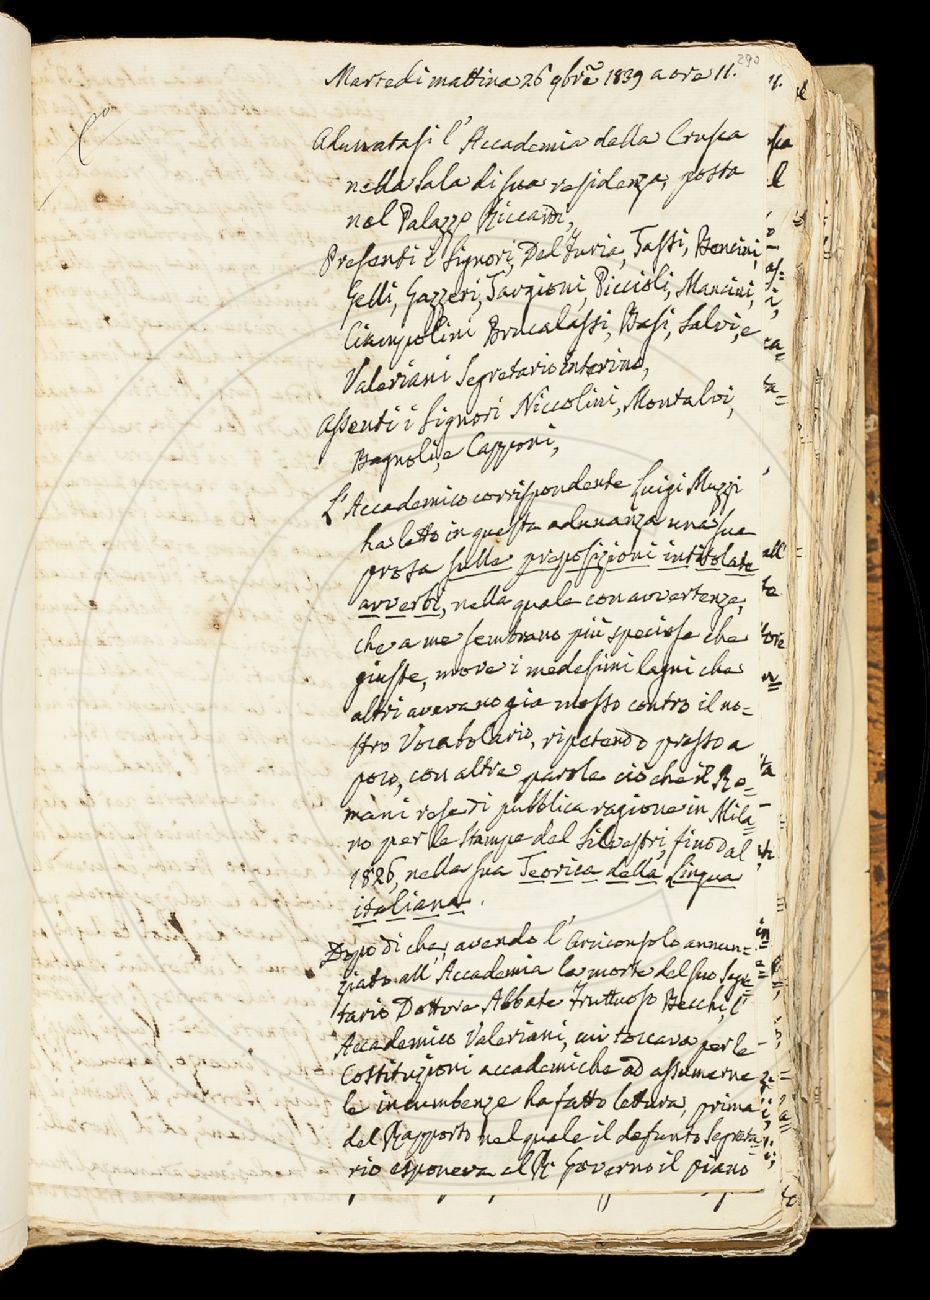 290
Martedì mattina 26 9bre 1839 a ore 11.
Adunatasi l'Accademia della Crusca
nella sala di sua residenza, posta
nel Palazzo Riccardi,
Presenti i Signori, Del Furia, Tassi, Bencini,
Gelli, Gazzeri, Targioni, Piccioli, Mancini,
Ciampolini Brucalassi, Basi, Salvi, e
Valeriani Segretario interino,
Assenti i Signori Niccolini, Montalvi,
Bagnoli, e Capponi,
L'Accademico corrispondente Luigi Muzzi
ha letto in questa adunanza una sua
prosa sulle preposizioni intitolate
avverbi, nella quale con avvertenze,
che a me sembrano più speciose che
giuste, move i medesimi lagni che
altri avevano già mosso contro il no=
stro Vocabolario, ripetendo presso a
poco, con altre parole ciò che il Ro=
mani rese di pubblica ragione in Mila=
no per le stampe del Silvestri, fino dal
1826, nella sua Teorica della Lingua
italiana.
Dopo di che, avendo l'Arciconsolo annun=
ziato all'Accademia la morte del suo Segre=
tario Dottore Abbate Fruttuoso Becchi, l'
Accademico Valeriani, cui toccava per le
Costituzioni accademiche ad assumerne
le incumbenze ha fatto lettura, prima
del Rapporto nel quale il defunto Segreta=
rio esponeva al R. Governo il piano